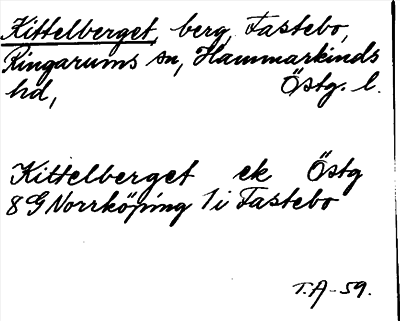 Kittelberget, berg, Fastebo,
Ringarums sn, Hammarkinds
hd, Östg. l.
Kittelberget ek Östg
8 G Norrköping 1 i Fastebo
T.A-59.